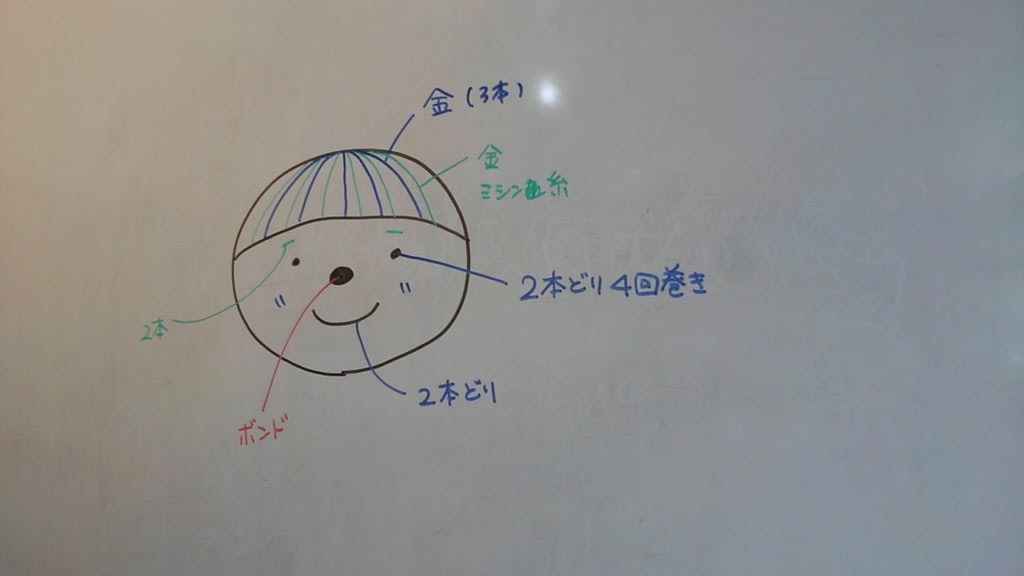 金(3本)
金
ミシン糸
2本どり4回巻き
2本
2本どり
ボンド